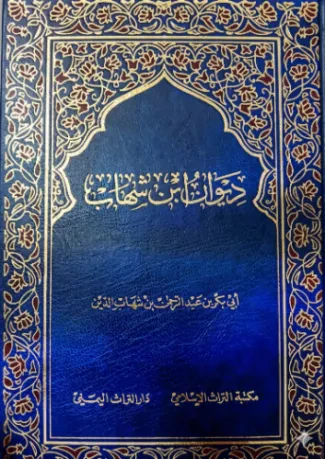 ديوان ابن شهاب
أبي بكر بن عبد الرحمن بن شهاب الدين
مكتبة التراث الإسلامي دار التراث اليمني